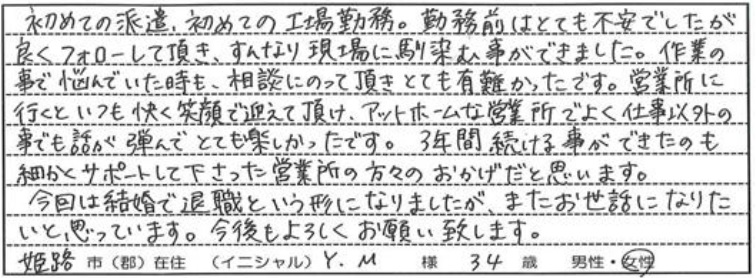 初めての派遣、初めての工場勤務。勤務前はとても不安でしたが
良くフォローして頂き、すんなり現場に馴染む事ができました。作業の
事で悩んでいた時も、相談にのって頂きとても有難かったです。営業所に
行くといつも快く笑顔で迎えて頂け、アットホームな営業所でよく仕事以外の
事でも話が弾んでとても楽しかったです。3年間続ける事ができたのも
細かくサポートして下さった営業所の方々のおかげだと思います。
今回は結婚で退職という形になりましたが、またお世話になりた
いと思っています。今後もよろしくお願い致します。
姫路 市（郡）在住 （イニシャル）Y.M 様 34 歳 男性・女性